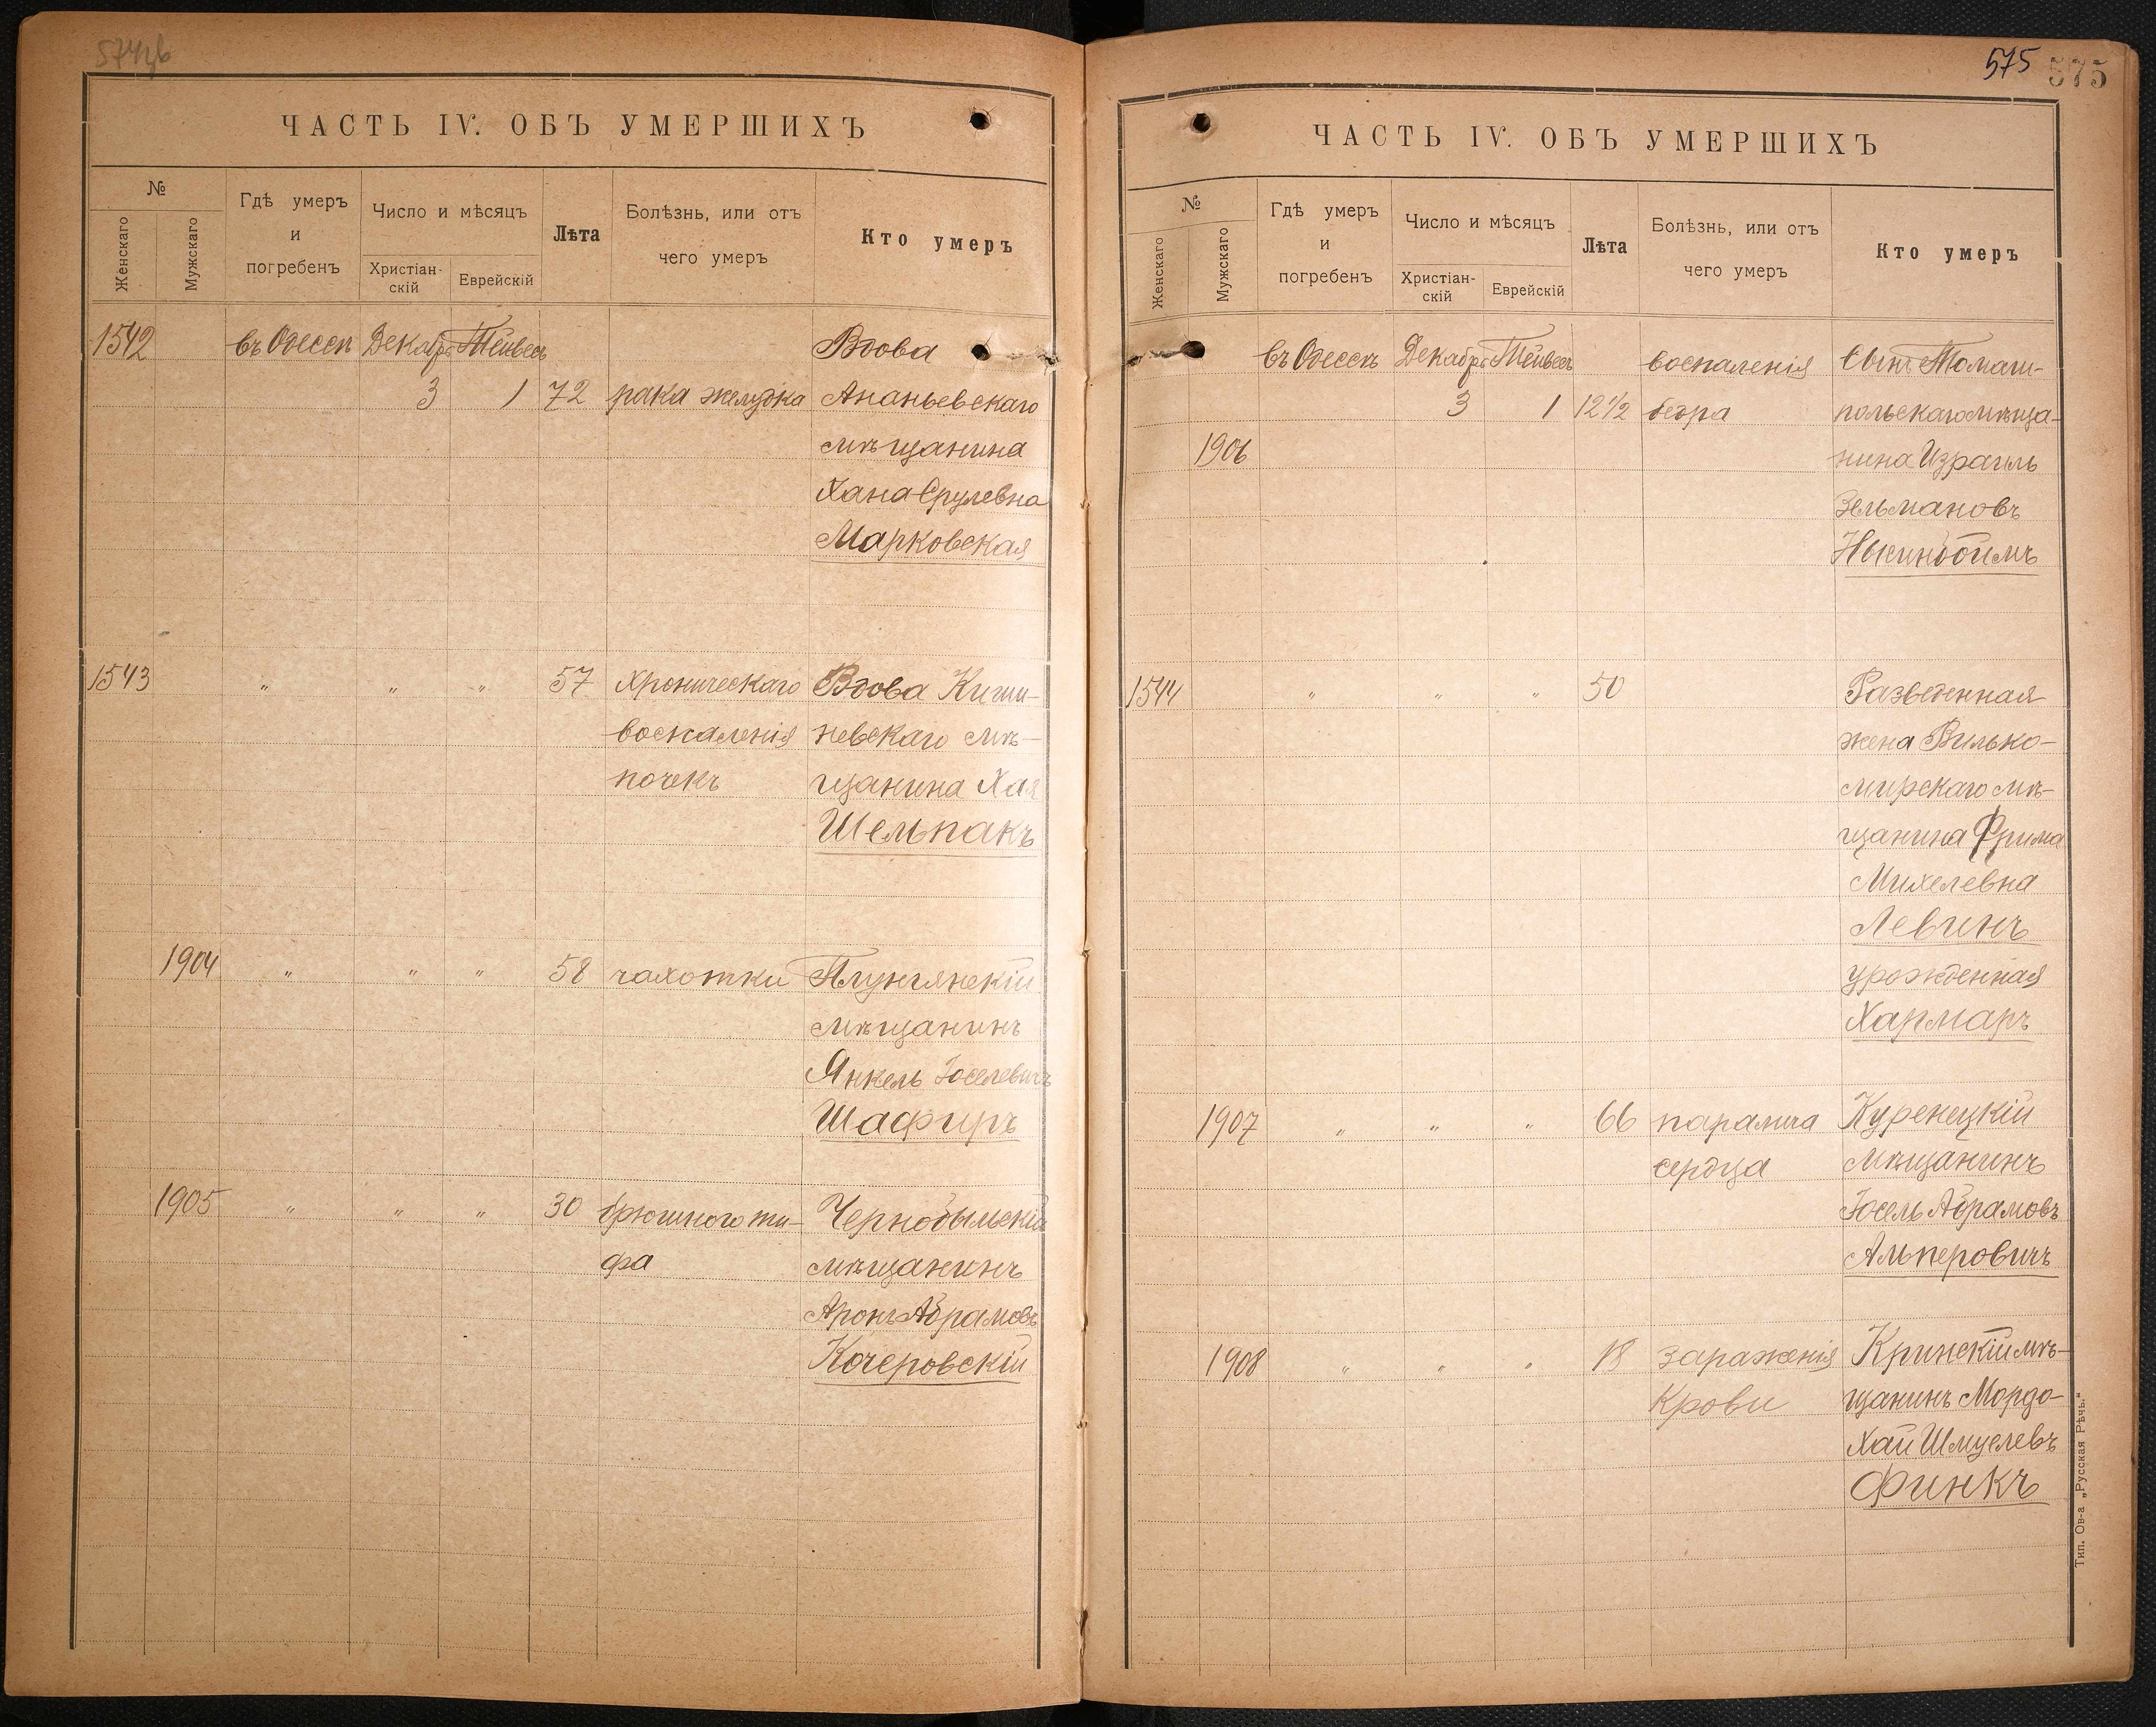 574
ЧАСТЬ IV. ОБЪ УМЕРШИХЪ
№
Женскаго
Мужскаго
Гдѣ умеръ
и
погребенъ
Число и мѣсяцъ
Христіан-
скій
Еврейскій
Лѣта
Болѣзнь, или отъ
чего умеръ
Кто умеръ
1542 въ Одессѣ Декабрь Тейвесъ Вдова
3 1 72 рака желудка Ананьевскаго
мѣщанина
Хана Срулевна
Марковская
1543 " " " 57 хроническаго Вдова Киши-
воспаленія невскаго мѣ-
почекъ щанина Хая
Шельпакъ
1904 " " " 58 чахотки Плунгянскій
мѣщанинъ
Янкель Іоселевичъ
Шафиръ
1905 " " " 30 брюшного ти- Чернобыльскій
фа мѣщанинъ
Аронъ Абрамовъ
Кочеровскій
575 575
ЧАСТЬ IV. ОБЪ УМЕРШИХЪ
№
Женскаго
Мужскаго
Гдѣ умеръ
и
погребенъ
Число и мѣсяцъ
Христіан-
скій
Еврейскій
Лѣта
Болѣзнь, или отъ
чего умеръ
Кто умеръ
въ Одессѣ Декабрь Тейвесъ воспаленія Сынъ Томаш-
3 1 12½ бедра польскаго мѣща-
1906 нина Израиль
Зельмановъ
1544 " " " 50 Разведенная
жена Вилько-
мирскаго мѣ-
щанина Фрима
Михелевна
Левинъ
урожденная
Хармаръ
1907 " " " 66 паралича Куренецкій
сердца мѣщанинъ
Іосель Абрамовъ
Альперовичъ
1908 " " " 18 зараженія Кринскій мѣ-
Крови щанинъ Мордо-
Хай Шмуелевъ
Финкъ
Тип. Ов-а „Русская Рѣчь."